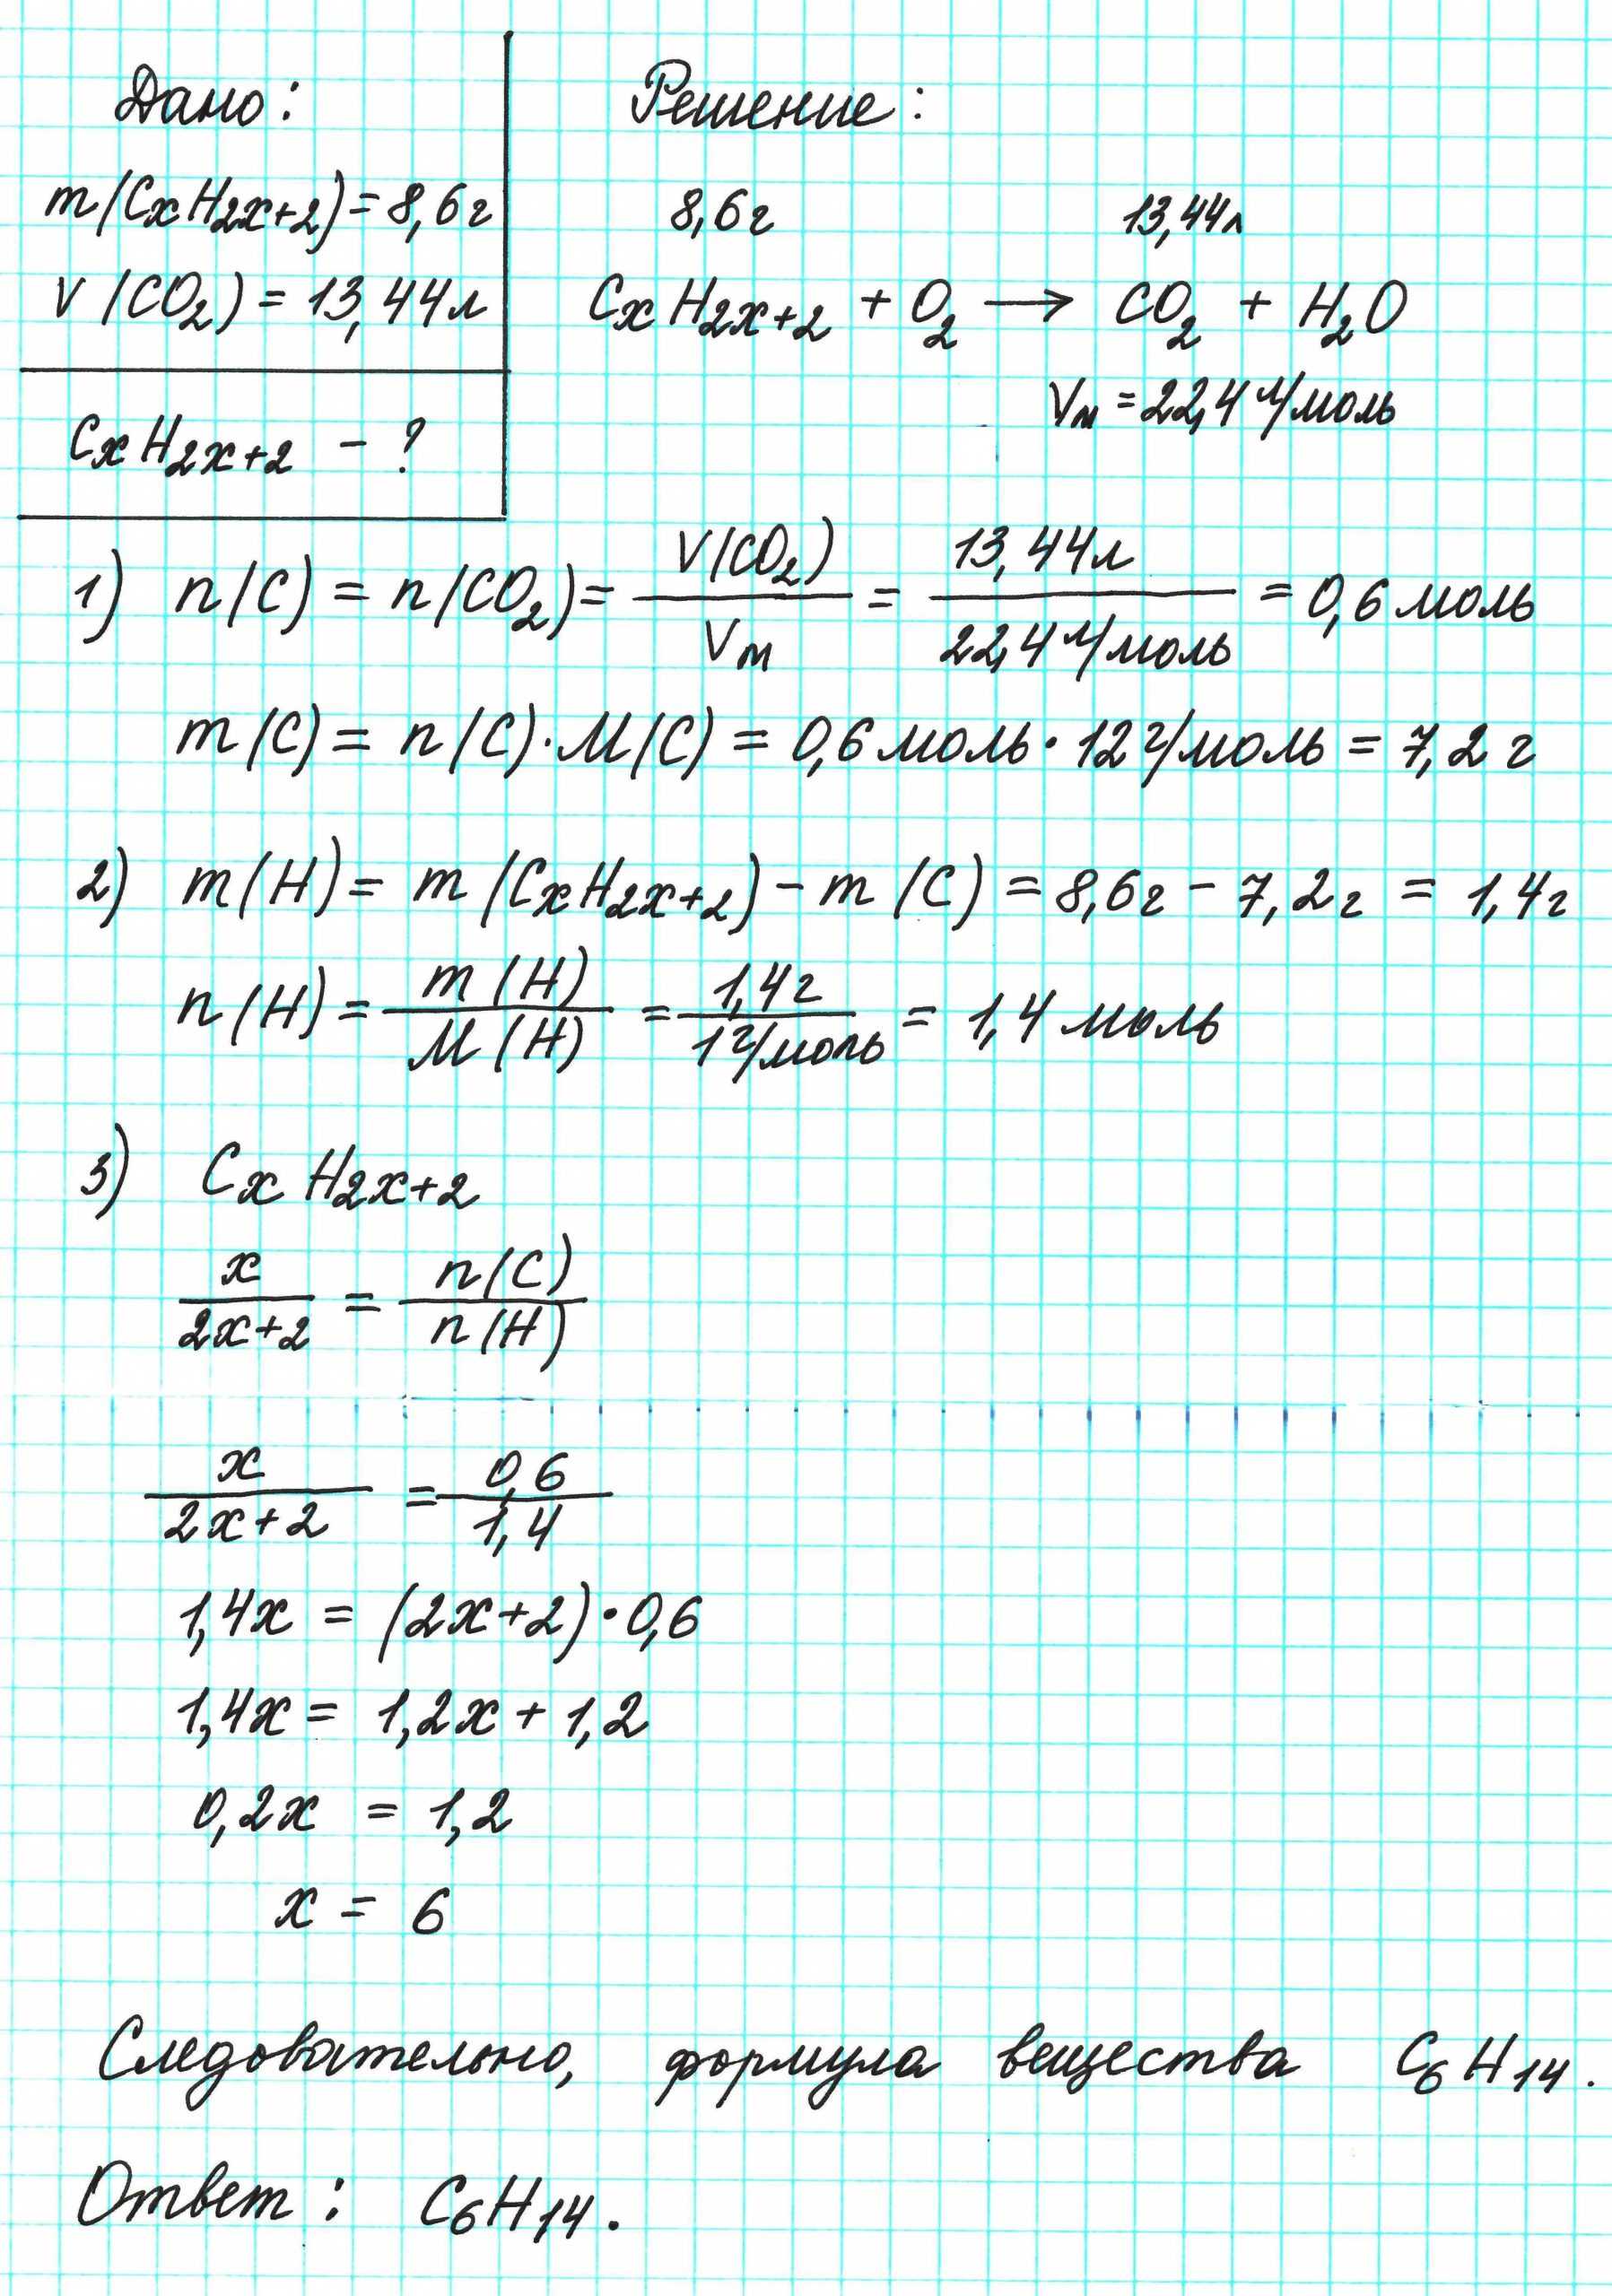 Дано:
m(CxH2x+2) = 8,6г
V(CO2) = 13,44л
CxH2x+2 - ?
Решение:
8,6г 13,44л
CxH2x+2 + O2 → CO2 + H2O
Vм = 22,4 л/моль
1) n(C) = n(CO2) = V(CO2) / Vм = 13,44л / 22,4 л/моль = 0,6 моль
m(C) = n(C)·M(C) = 0,6 моль · 12 г/моль = 7,2 г
2) m(H) = m(CxH2x+2) - m(C) = 8,6г - 7,2г = 1,4г
n(H) = m(H) / M(H) = 1,4г / 1 г/моль = 1,4 моль
3) CxH2x+2
x / 2x+2 = n(C) / n(H)
x / 2x+2 = 0,6 / 1,4
1,4x = (2x+2)·0,6
1,4x = 1,2x + 1,2
0,2x = 1,2
x = 6
Следовательно, формула вещества C6H14.
Ответ: C6H14.